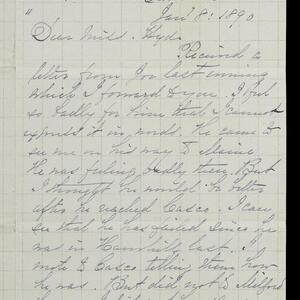 Jan 8: 1890
"
Dear Miss. Hyde.
Received a
letter from Joe last evening
which I forward to you. I feel
so badly for him that I cannot
express it in words. He came to
see me on his way to Maine.
He was failing badly then. But
I thought he would be better
after he reached Casco. I can
see that he has failed since he
was in Haverhill last. I
wrote to Casco telling them how
he was. But did not to Milford